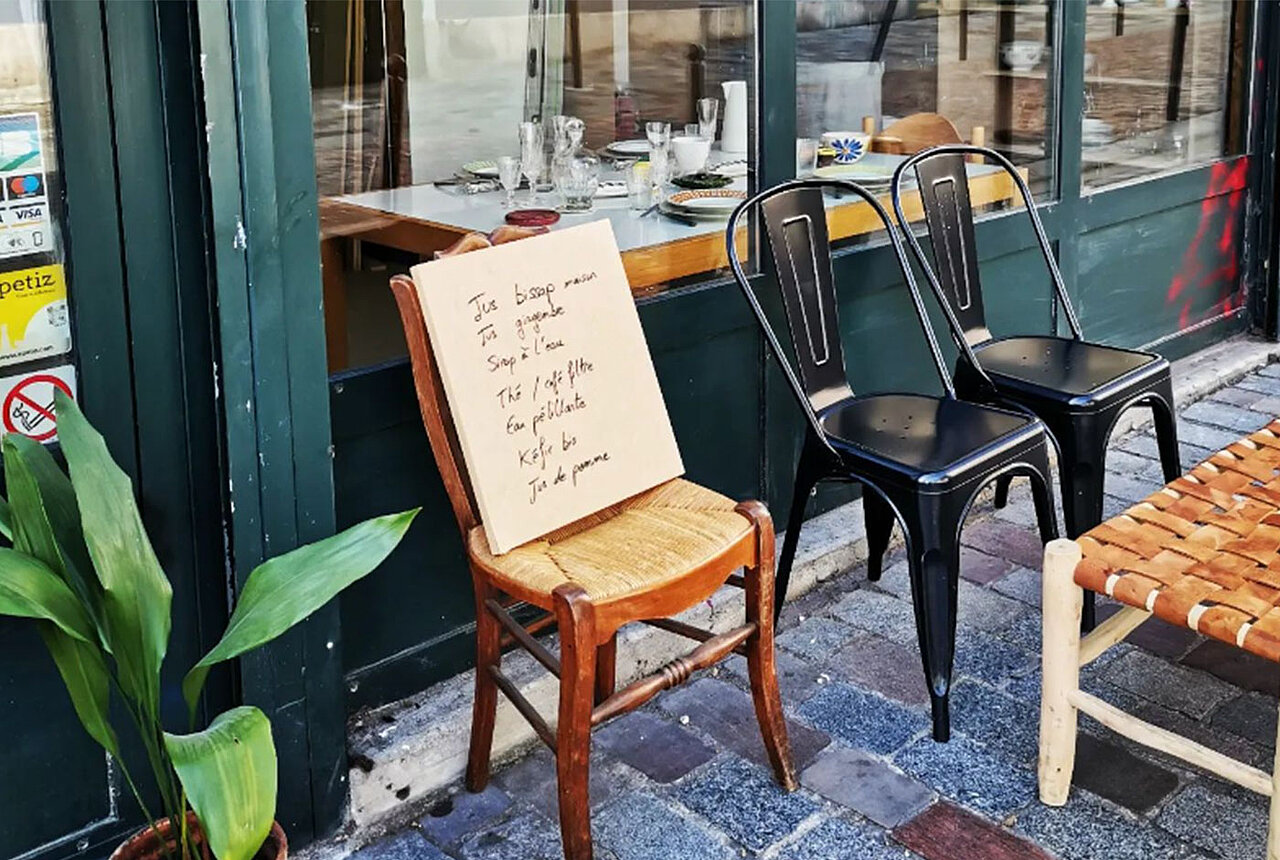 VISA
petiz
Jus bissap maison
Jus gingembre
Sirop à l'eau
Thé / café filtre
Eau pétillante
Kéfir bio
Jus de pomme